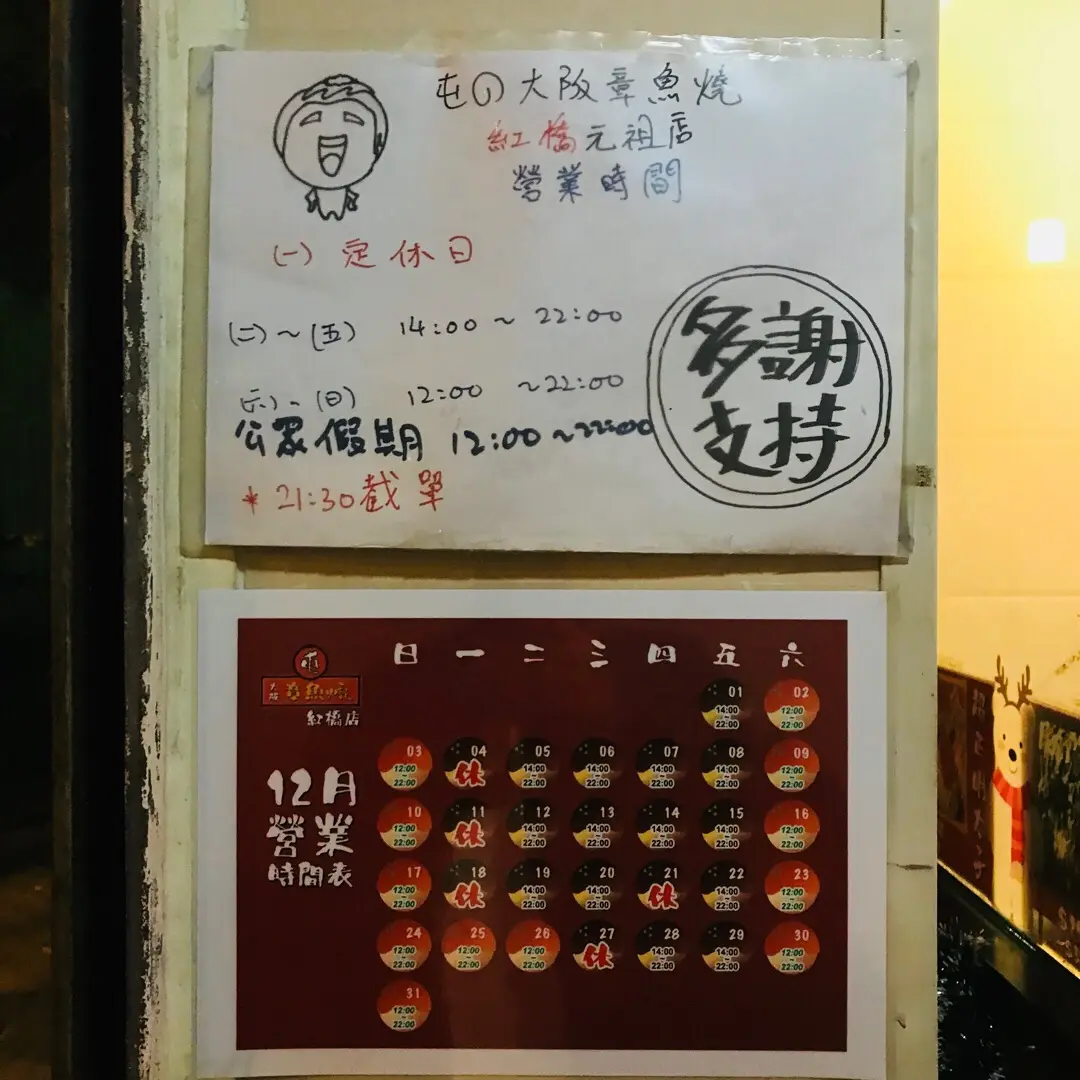 屯の大阪章魚燒
紅橋元祖店
營業時間
(一) 定休日
(二)~(五) 14:00~22:00
(六)~(日) 12:00 ~22:00
公眾假期 12:00~22:00
*21:30截單
多謝
支持
大阪章魚燒
紅橋店
12月
營業
時間表
日 一 二 三 四 五 六
01 14:00~22:00 02 12:00~22:00
03 12:00~22:00 04 休 05 14:00~22:00 06 14:00~22:00 07 14:00~22:00 08 14:00~22:00 09 12:00~22:00
10 12:00~22:00 11 休 12 14:00~22:00 13 14:00~22:00 14 14:00~22:00 15 14:00~22:00 16 12:00~22:00
17 12:00~22:00 18 休 19 14:00~22:00 20 14:00~22:00 21 休 22 14:00~22:00 23 12:00~22:00
24 12:00~22:00 25 12:00~22:00 26 12:00~22:00 27 休 28 14:00~22:00 29 14:00~22:00 30 12:00~22:00
31 12:00~22:00